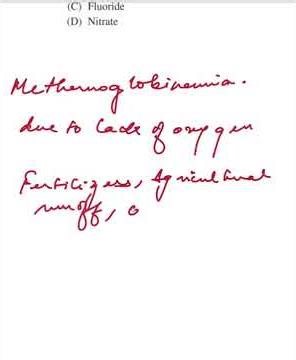 (C) Fluoride
(D) Nitrate
Methemoglobinemia.
due to lack of oxygen
Fertilizess, Agricultural
runoff,